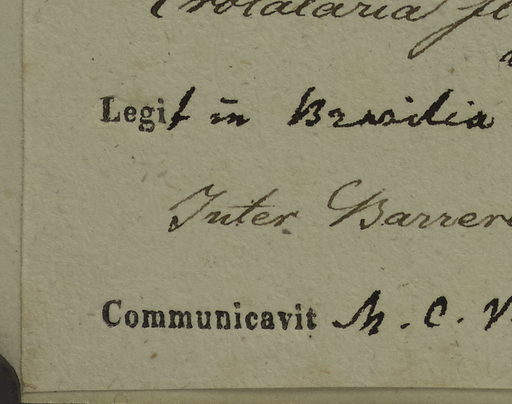 Crotalaria fl
Legit in Brasilia
Inter Barrer
Communicavit M. C. V